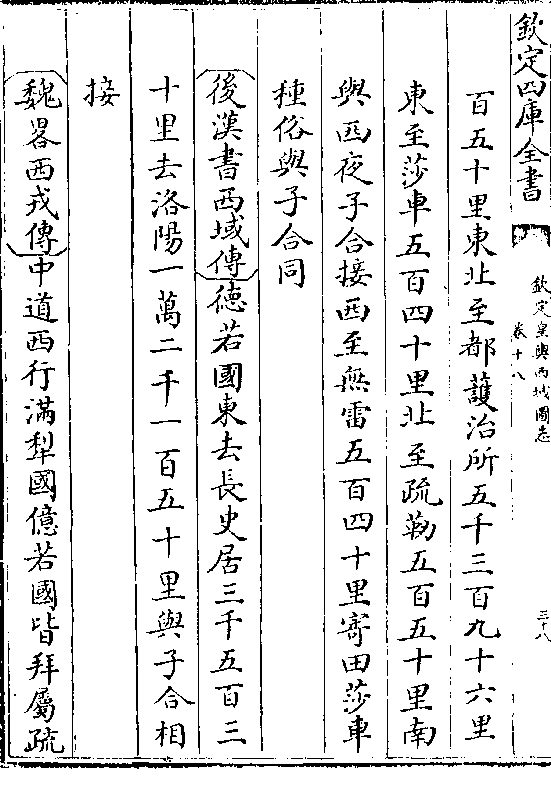 欽定四庫全書
欽定皇輿西域圖志
卷十八
三十八
百五十里東北至都護治所五千三百九十六里
東至莎車五百四十里北至疏勒五百五十里南
與西夜子合接西至無雷五百四十里寄田莎車
種俗與子合同
後漢書西域傳德若國東去長史居三千五百三
十里去洛陽一萬二千一百五十里與子合相
接
魏畧西戎傳中道西行滿犁國億若國皆拜屬疏